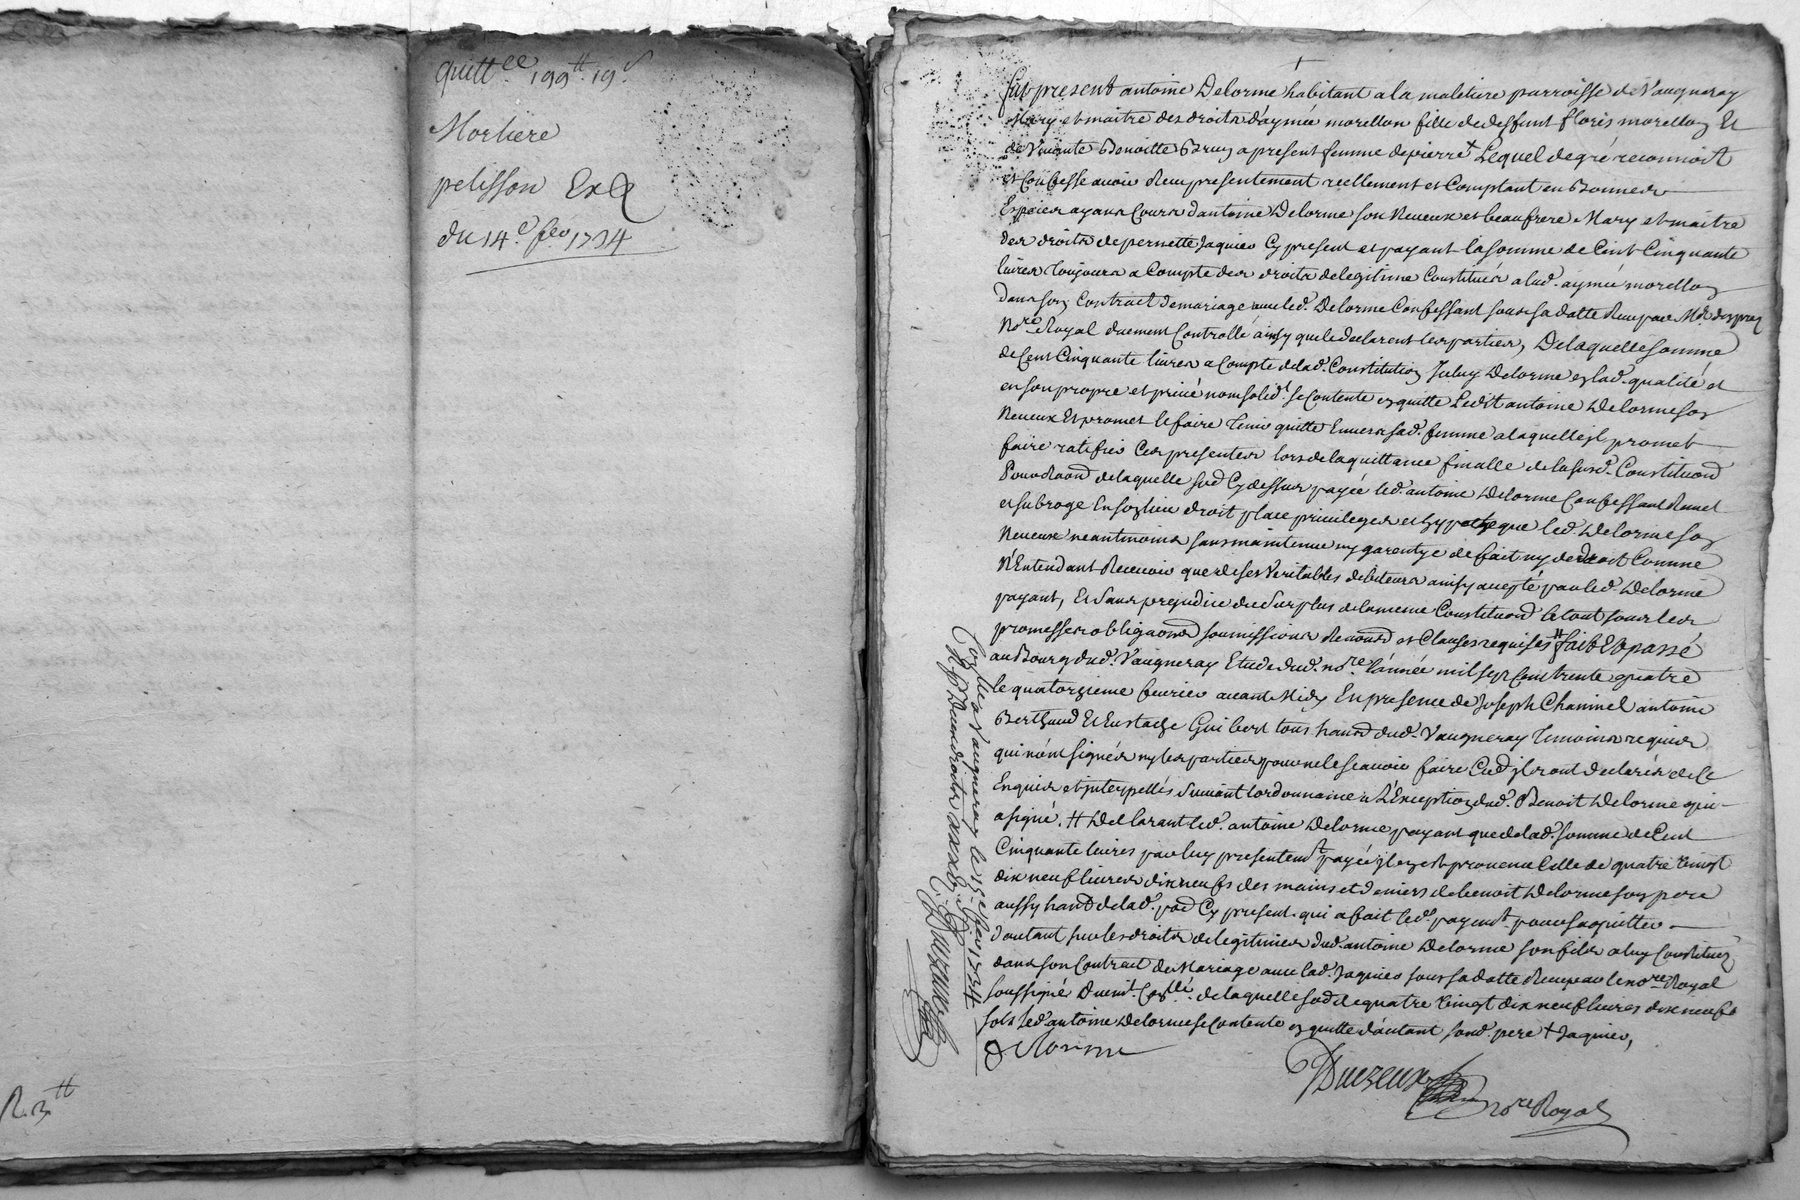 quitt.ce 199tt 19s
Morliere
pelisson Ex
du 14e fev 1734
R. 3tt
Fut present antoine Delorme habitant a la maletiere parroisse de Vaugneray
Mary et maitre des droits d'aymée morellon fille de deffunt floris morellon et
de Vivante Benoitte Brun a present femme de pierre Lequel de gré reconnoit
et Confesse avoir Receu presentement reellement et Comptant en Bonnes
Especes ayans Cours d'antoine Delorme son Neveux et beaufrere Mary et maitre
des droits de pernette Jaquier Cy present et payant la somme de Cent Cinquante
livres Toujours a Compte des droits de legitime Constitués a lad. aymée morellon
dans son Contract de mariage avec led. Delorme Confessant sous sa datte Receu par Me
Nore Royal duement Controllé ainsy que le declarent les parties, De laquelle somme
de Cent Cinquante livres a Compte de lad. Constitution Iceluy Delorme en lad. qualité et
en son propre et privé nom solidt se Contente en quitte Ledit antoine Delorme son
Neveux Et promet le faire Tenir quitte Envers sad. femme a laquelle il promet
faire ratifier Ces presentes lors de la quittance finalle de la susd. Constituon
Pour Raon de laquelle sod Cy dessus payée led. antoine Delorme Confessant Remet
et subroge En son lieu droit place privileges et hypotheque led. Delorme son
Neveux neantmoins sans maintenue ny garentye de fait ny de droit Comme
N'Entendant Recevoir que de ses Veritables debiteurs ainsy accepté par led. Delorme
payant, Et Sans prejudice du Surplus de la meme Constituon le tout sous les
promesses obligaons soumissions Renonons et Clauses requises # fait Et passé
au Bourg dud. Vaugneray Etude dud. nore l'année mil sept Cent trente quatre
le quatorzieme fevrier avant Midy En presence de Joseph Chaninel antoine
Berthaud Et Eustache Guibert tous hants dud. Vaugneray Temoins requis
qui n'ont signés ny les parties pour ne le scavoir faire Cud ils ont declarés de Ce
Enquis et interpellés Suivant l'ordonnance a L'Exception dud. Benoit Delorme qui
a signé. # Declarant led. antoine Delorme payant que de lad. somme de Cent
Cinquante livres par luy presentemt payée il en est provenu Celle de quatre Vingt
dix neuf livres dix neuf s des mains et deniers de benoit Delorme son pere
aussy hant de lad. pod Cy present qui a fait led. payemt pour s'aquitter
d'autant sur les droits de legitimes dud. antoine Delorme son fils a luy Constitués
dans son Contract de Mariage avec lad. Jaquier sous sa datte Receu par le nore Royal
soussigné Duemt Conllé de laquelle sod de quatre Vingt dix neuf livres dix neuf
sols led. antoine Delorme se Contente en quitte d'autant sond. pere + Jaquier,
delorme
Duizeux
nore Royal
Conlle a Vaugneray le 15e fevr 1734